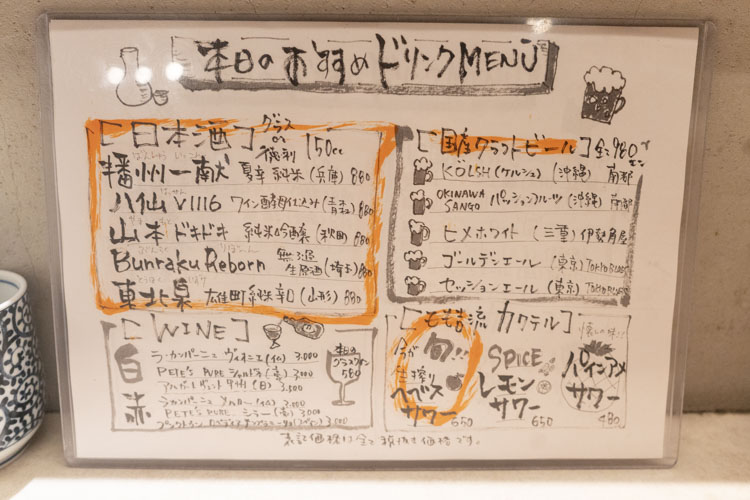 本日のおすすめドリンクMENU
[日本酒] グラスor徳利 150cc
播州一献 夏辛 純米 (兵庫) 880
八仙 V1116 ワイン酵母仕込み (青森) 880
山本 ドキドキ 純米吟醸 (秋田) 880
Bunraku Reborn 無濾過生原酒 (埼玉) 880
東北泉 雄町 純米 辛口 (山形) 890
[国産クラフトビール] 全て980
KÖLSH (ケルシュ) (沖縄) 南都
OKINAWA SANGO パッションフルーツ (沖縄) 南都
ヒメホワイト (三重) 伊勢角屋
ゴールデンエール (東京) TOKYO BLUES
セッションエール (東京) TOKYO BLUES
[WINE]
白
ラ・カンパーニュ ヴィオニエ (仏) 3.000
PETE'S PURE シャルドネ (豪) 3.000
甲州 (日) 3.500
赤
ラ・カンパーニュ メルロー (仏) 3.000
PETE'S PURE シラー (豪) 3.000
3.000
本日のグラスワイン 580
カクテル]
今が旬!!
生搾り
ヘベスサワー 650
SPICE レモンサワー 650
懐しの味!!
パインアメサワー 480
表記価格は全て税抜き価格です。